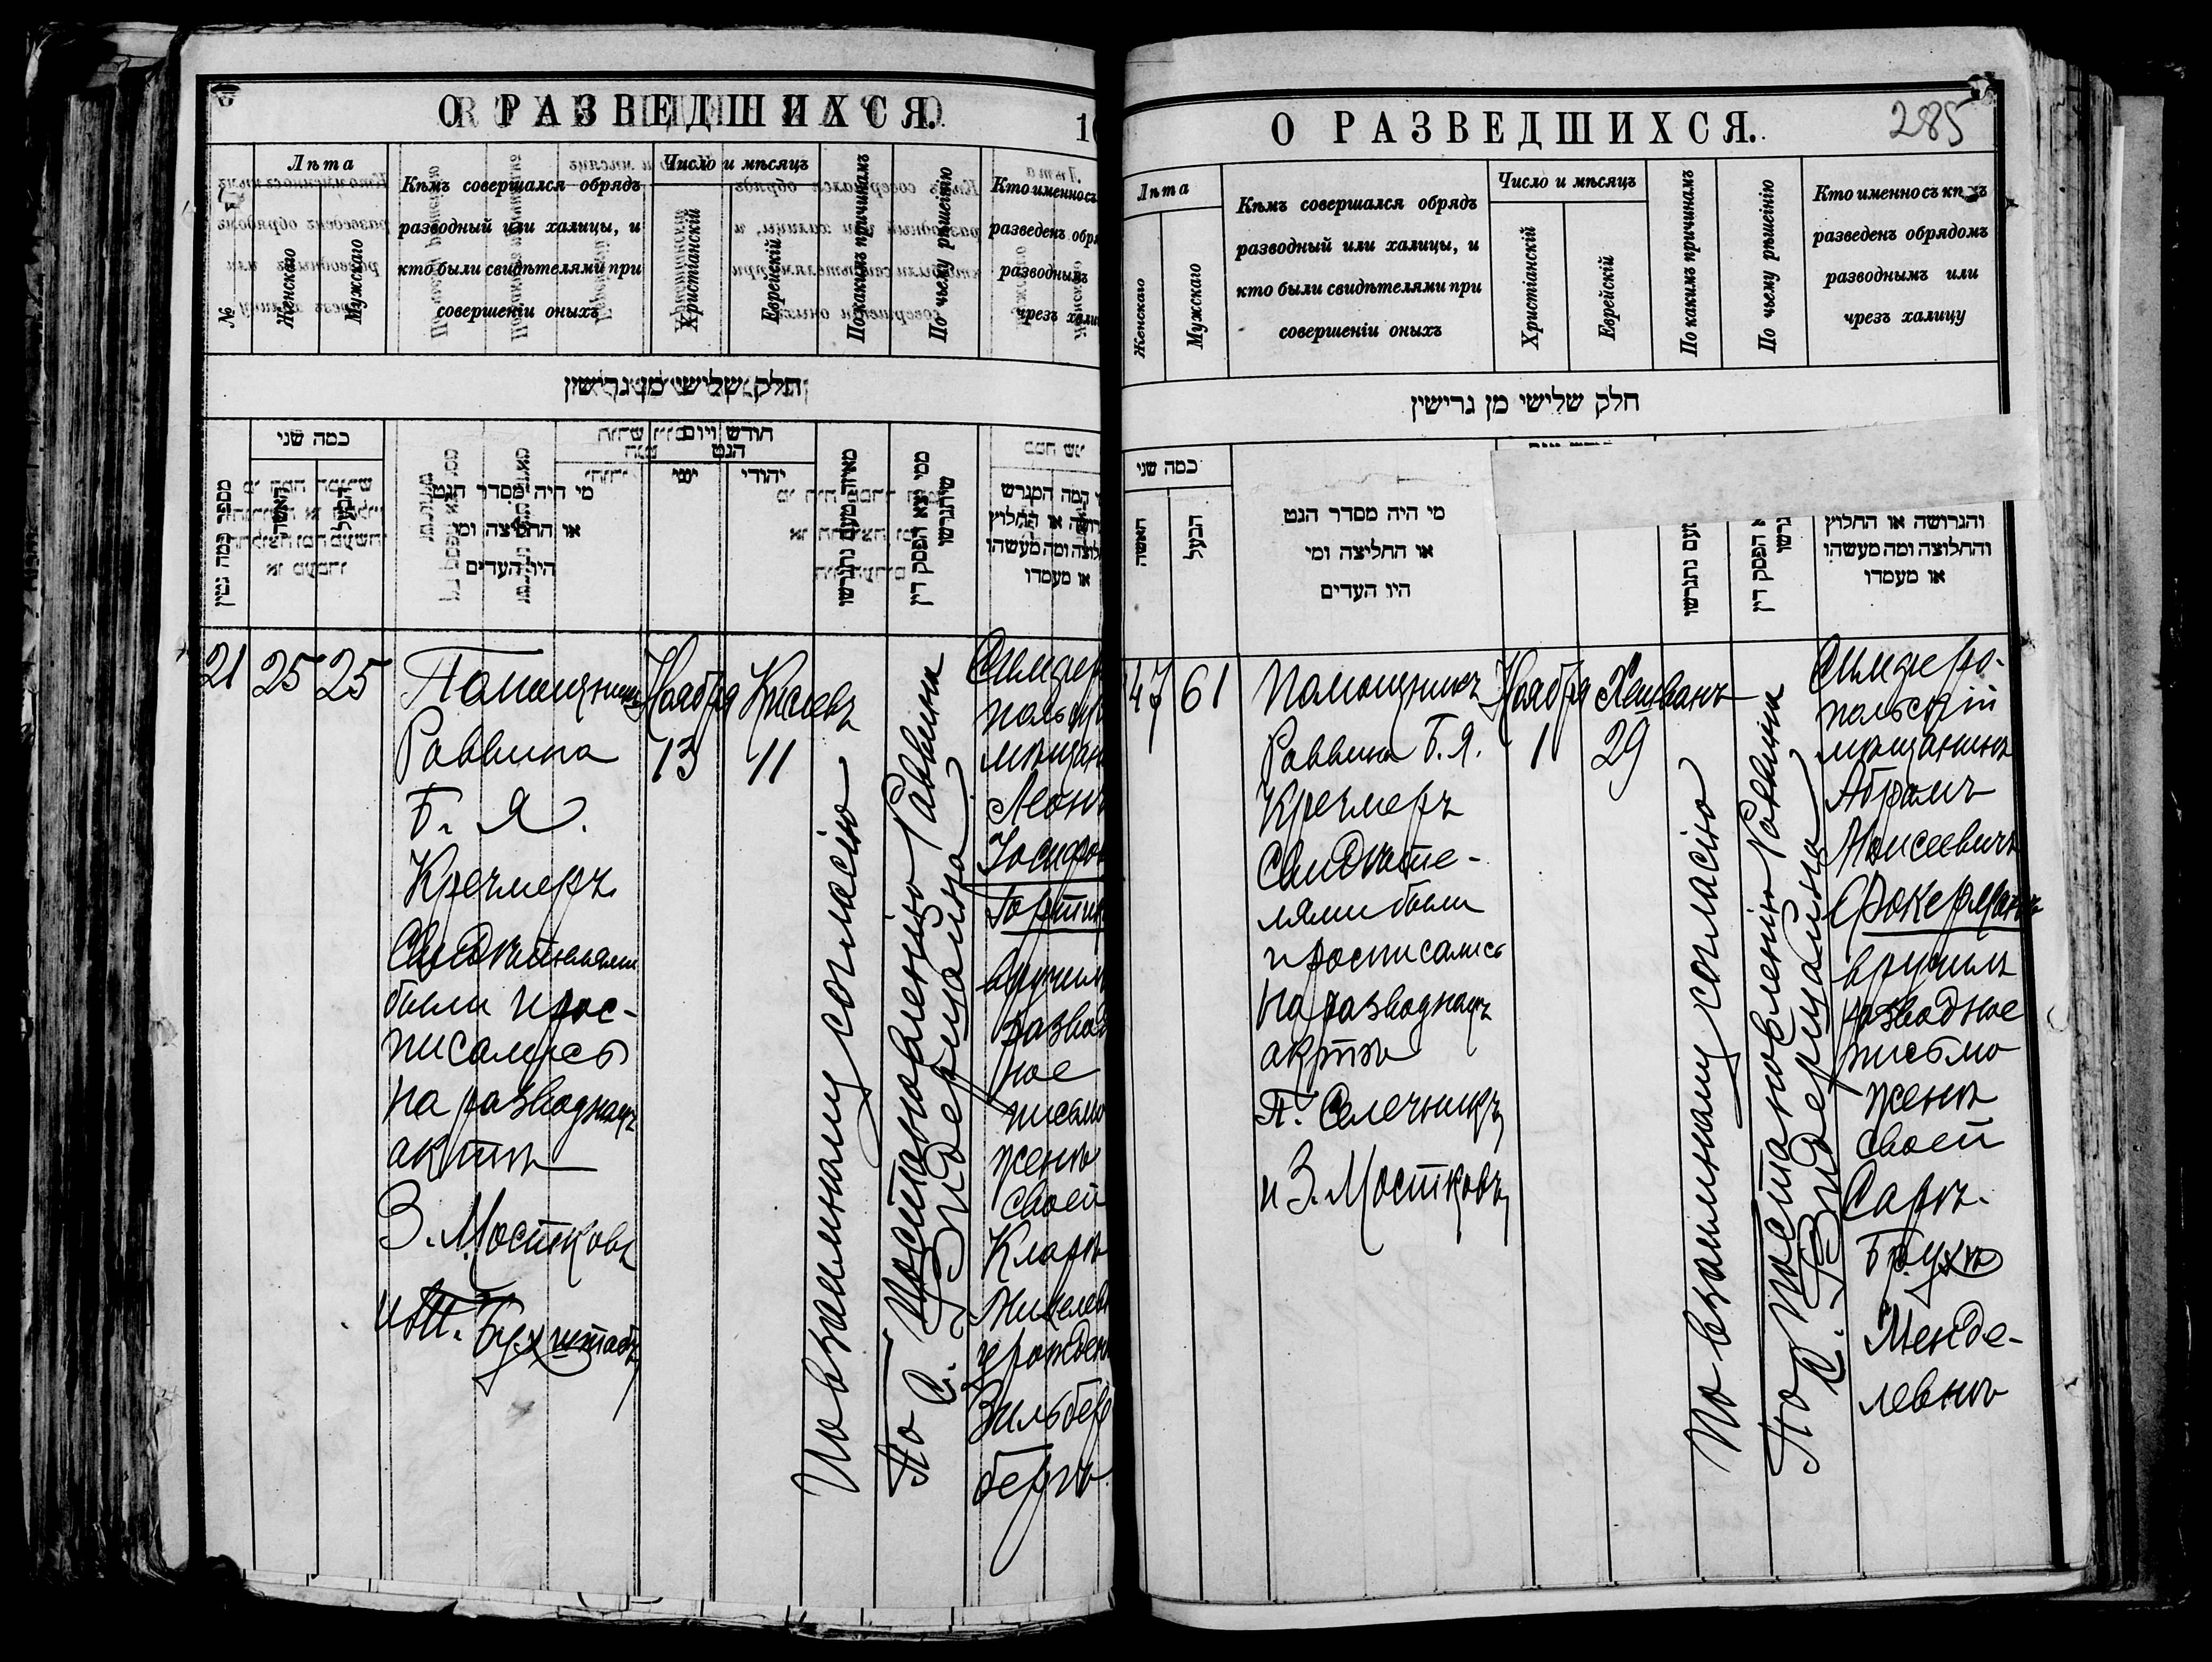 О РАЗВЕДШИХСЯ.
№
Лѣта
Женскаго
Мужскаго
Кѣмъ совершался обрядъ
разводный или халицы, и
кто были свидѣтелями при
совершеніи оныхъ
Число и мѣсяцъ
Христіанскій
Еврейскій
По какимъ причинамъ
По чьему рѣшенію
Кто именно съ
разведенъ обря
разводнымъ
чрезъ хали
חלק שלישי מן גרישין
כמה שני
האשה
הבעל
מי היה מסדר הגט
או החליצה ומי
היו העדים
חודש ויום
הגט
יהודי
או מעמדו
21
25
25
Помощникъ
Раввина
Б. Я.
Кречмеръ
Свидѣтелями
были и рос-
писались
на разводномъ
актѣ
З. Мостковъ
и М. Бухштабъ
Ноября
13
Кислевъ
11
По взаимному согласію
По постановленію Раввина
С. Видермана
Симфер
польскі
мѣщани
Леонъ
Іосифов
вручилъ
развод
ное
письмо
женѣ
своей
Кларѣ
урожден
Зильбер
бергъ
О РАЗВЕДШИХСЯ.
285
Лѣта
Женскаго
Мужскаго
Кѣмъ совершался обрядъ
разводный или халицы, и
кто были свидѣтелями при
совершеніи оныхъ
Число и мѣсяцъ
Христіанскій
Еврейскій
По какимъ причинамъ
По чьему рѣшенію
Кто именно съ кѣмъ
разведенъ обрядомъ
разводнымъ или
чрезъ халицу
חלק שלישי מן גרישין
כמה שני
האשה
הבעל
מי היה מסדר הגט
או החליצה ומי
היו העדים
והגרושה או החלוץ
והחלוצה ומה מעשהו
או מעמדו
47
61
Помощникъ
Раввина Б. Я.
Кречмеръ
Свидѣте-
лями были
и росписались
на разводномъ
актѣ
П. Селечникъ
и З. Мостковъ
Ноября
1
Хешванъ
29
По взаимному согласію
По постановленію Раввина
С. Видермана
Симферо-
польскій
мѣщанинъ
Абрамъ
Моисеевичъ
Фокерманъ
вручилъ
разводное
письмо
женѣ
своей
Сарѣ-
Брухѣ
Менде-
левнѣ